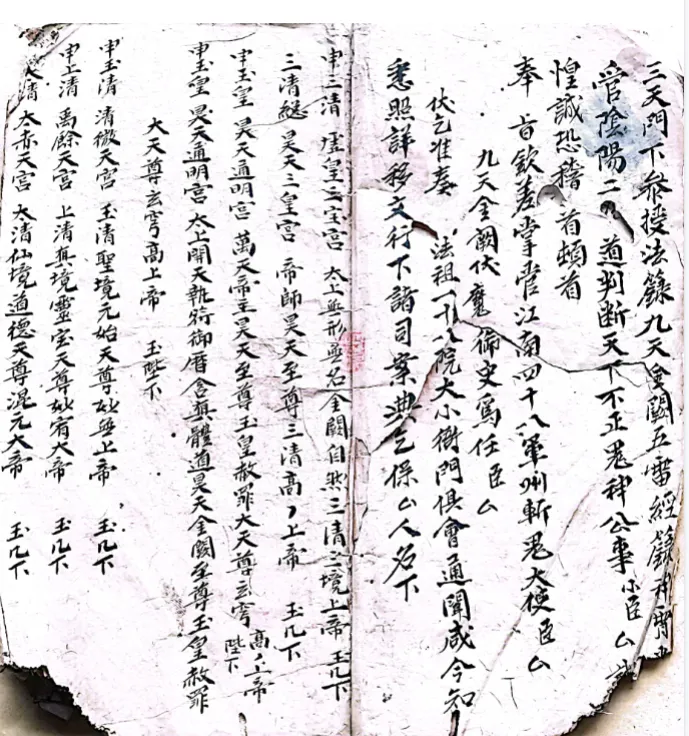 三天門下叅授法籙九天金闕五雷經籙
管陰陽二 道判斷天下不正鬼神公事小臣厶
惶誠恐稽首頓首
奉㫖欽差掌管江南四十八軍州斬鬼大使臣厶
九天金闕伏魔 史爲任臣厶
伏乞准奏 法祖一十八院大小衙門俱會通聞咸令知
悉照詳移文行下諸司案典乞保厶人名下
申三清 虛皇 宮 太上無形無名金闕自然三清三境上帝 玉几下
三清總 昊天三皇宮 帝師昊天至尊三清高上帝 玉几下
申玉皇 昊天通明宮 萬天帝主昊天至尊玉皇赦罪大天尊玄穹高上帝 陛下
申玉皇 昊天通明宮 太上開天執符御曆含真體道昊天金闕至尊玉皇赦罪
大天尊玄穹高上帝 玉陛下
申玉清 清微天宮 玉清聖境元始天尊妙無上帝 玉几下
申上清 禹餘天宮 上清真境靈宝天尊妙有大帝 玉几下
太清 太赤天宮 太清仙境道德天尊混元大帝 玉几下